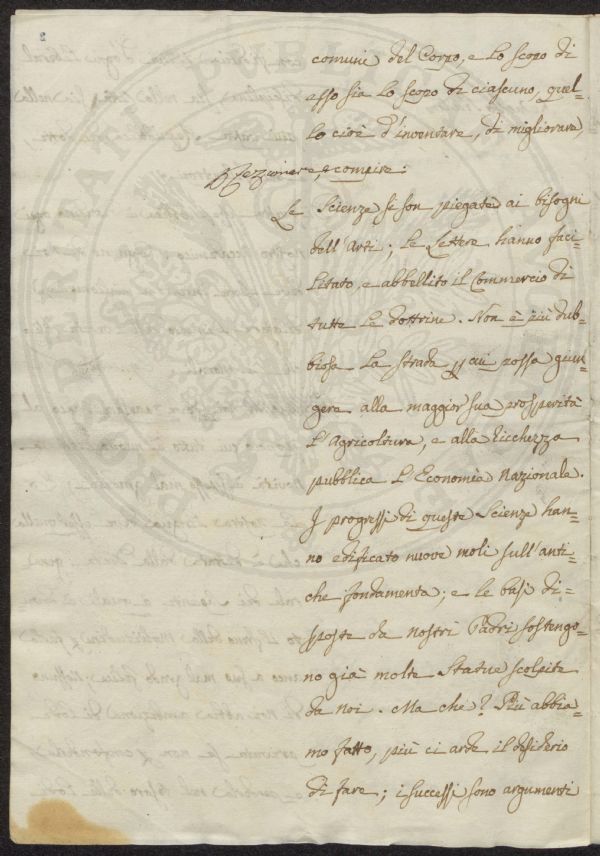 2
comuni del Corpo, e lo scopo di
esso sia lo scopo di ciascuno, quel=
lo cioè d'inventare, di migliorare,
e compire:
Le Scienze si son piegate ai bisogni
dell'Arti; le Lettere hanno faci=
litato, e abbellito il Commercio di
tutte le dottrine. Non è più dub=
biosa la strada p cui possa giun=
gere alla maggior sua prosperità
l'Agricoltura, e alla ricchezza
pubblica l'Economia Nazionale.
I progressi di queste Scienze han=
no edificato nuove moli sull'anti=
che fondamenta; e le basi di=
sposte da nostri Padri sostengo=
no già molte Statue scolpite
da noi. Ma che? Più abbia=
mo fatto, più ci arde il desiderio
di fare; i successi sono argumenti